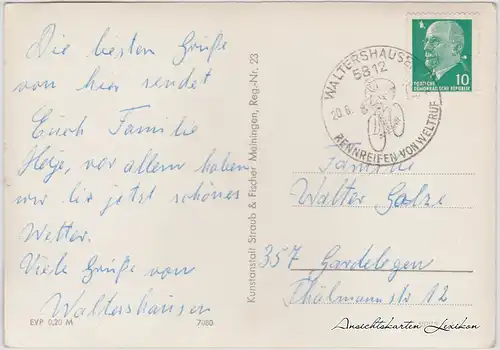 Die besten Grüße
von hier sendet
Euch Familie
vor allem haben
wir bis jetzt schönes
Wetter.
Viele Grüße von
Waltershausen
EVP 0,20 M
7080
Kunstanstalt Straub & Fischer Meiningen, Reg.-Nr. 23
WALTERSHAUSEN
5812
20.8.
RENNREIFEN VON WELTRUF
DEUTSCHE
DEMOKRATISCHE REPUBLIK
10
Familie
Walter
357 Gardelegen
Thälmannstr 12
Ansichtskarten Lexikon